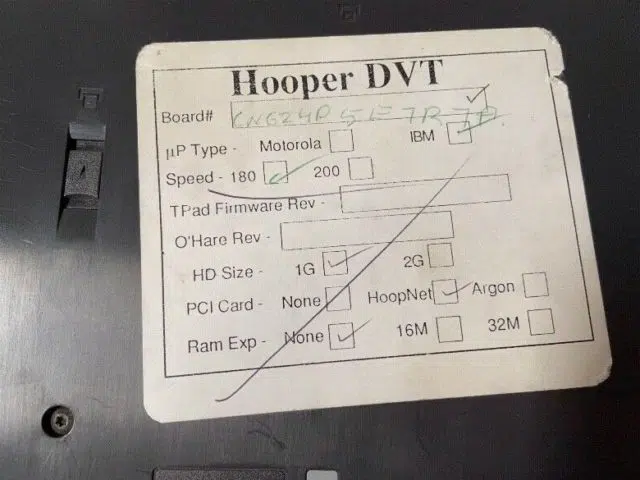 Hooper DVT
Board#
µP Type - Motorola IBM
Speed - 180 200
TPad Firmware Rev -
O'Hare Rev -
HD Size - 1G 2G
PCI Card - None HoopNet Argon
Ram Exp - None 16M 32M